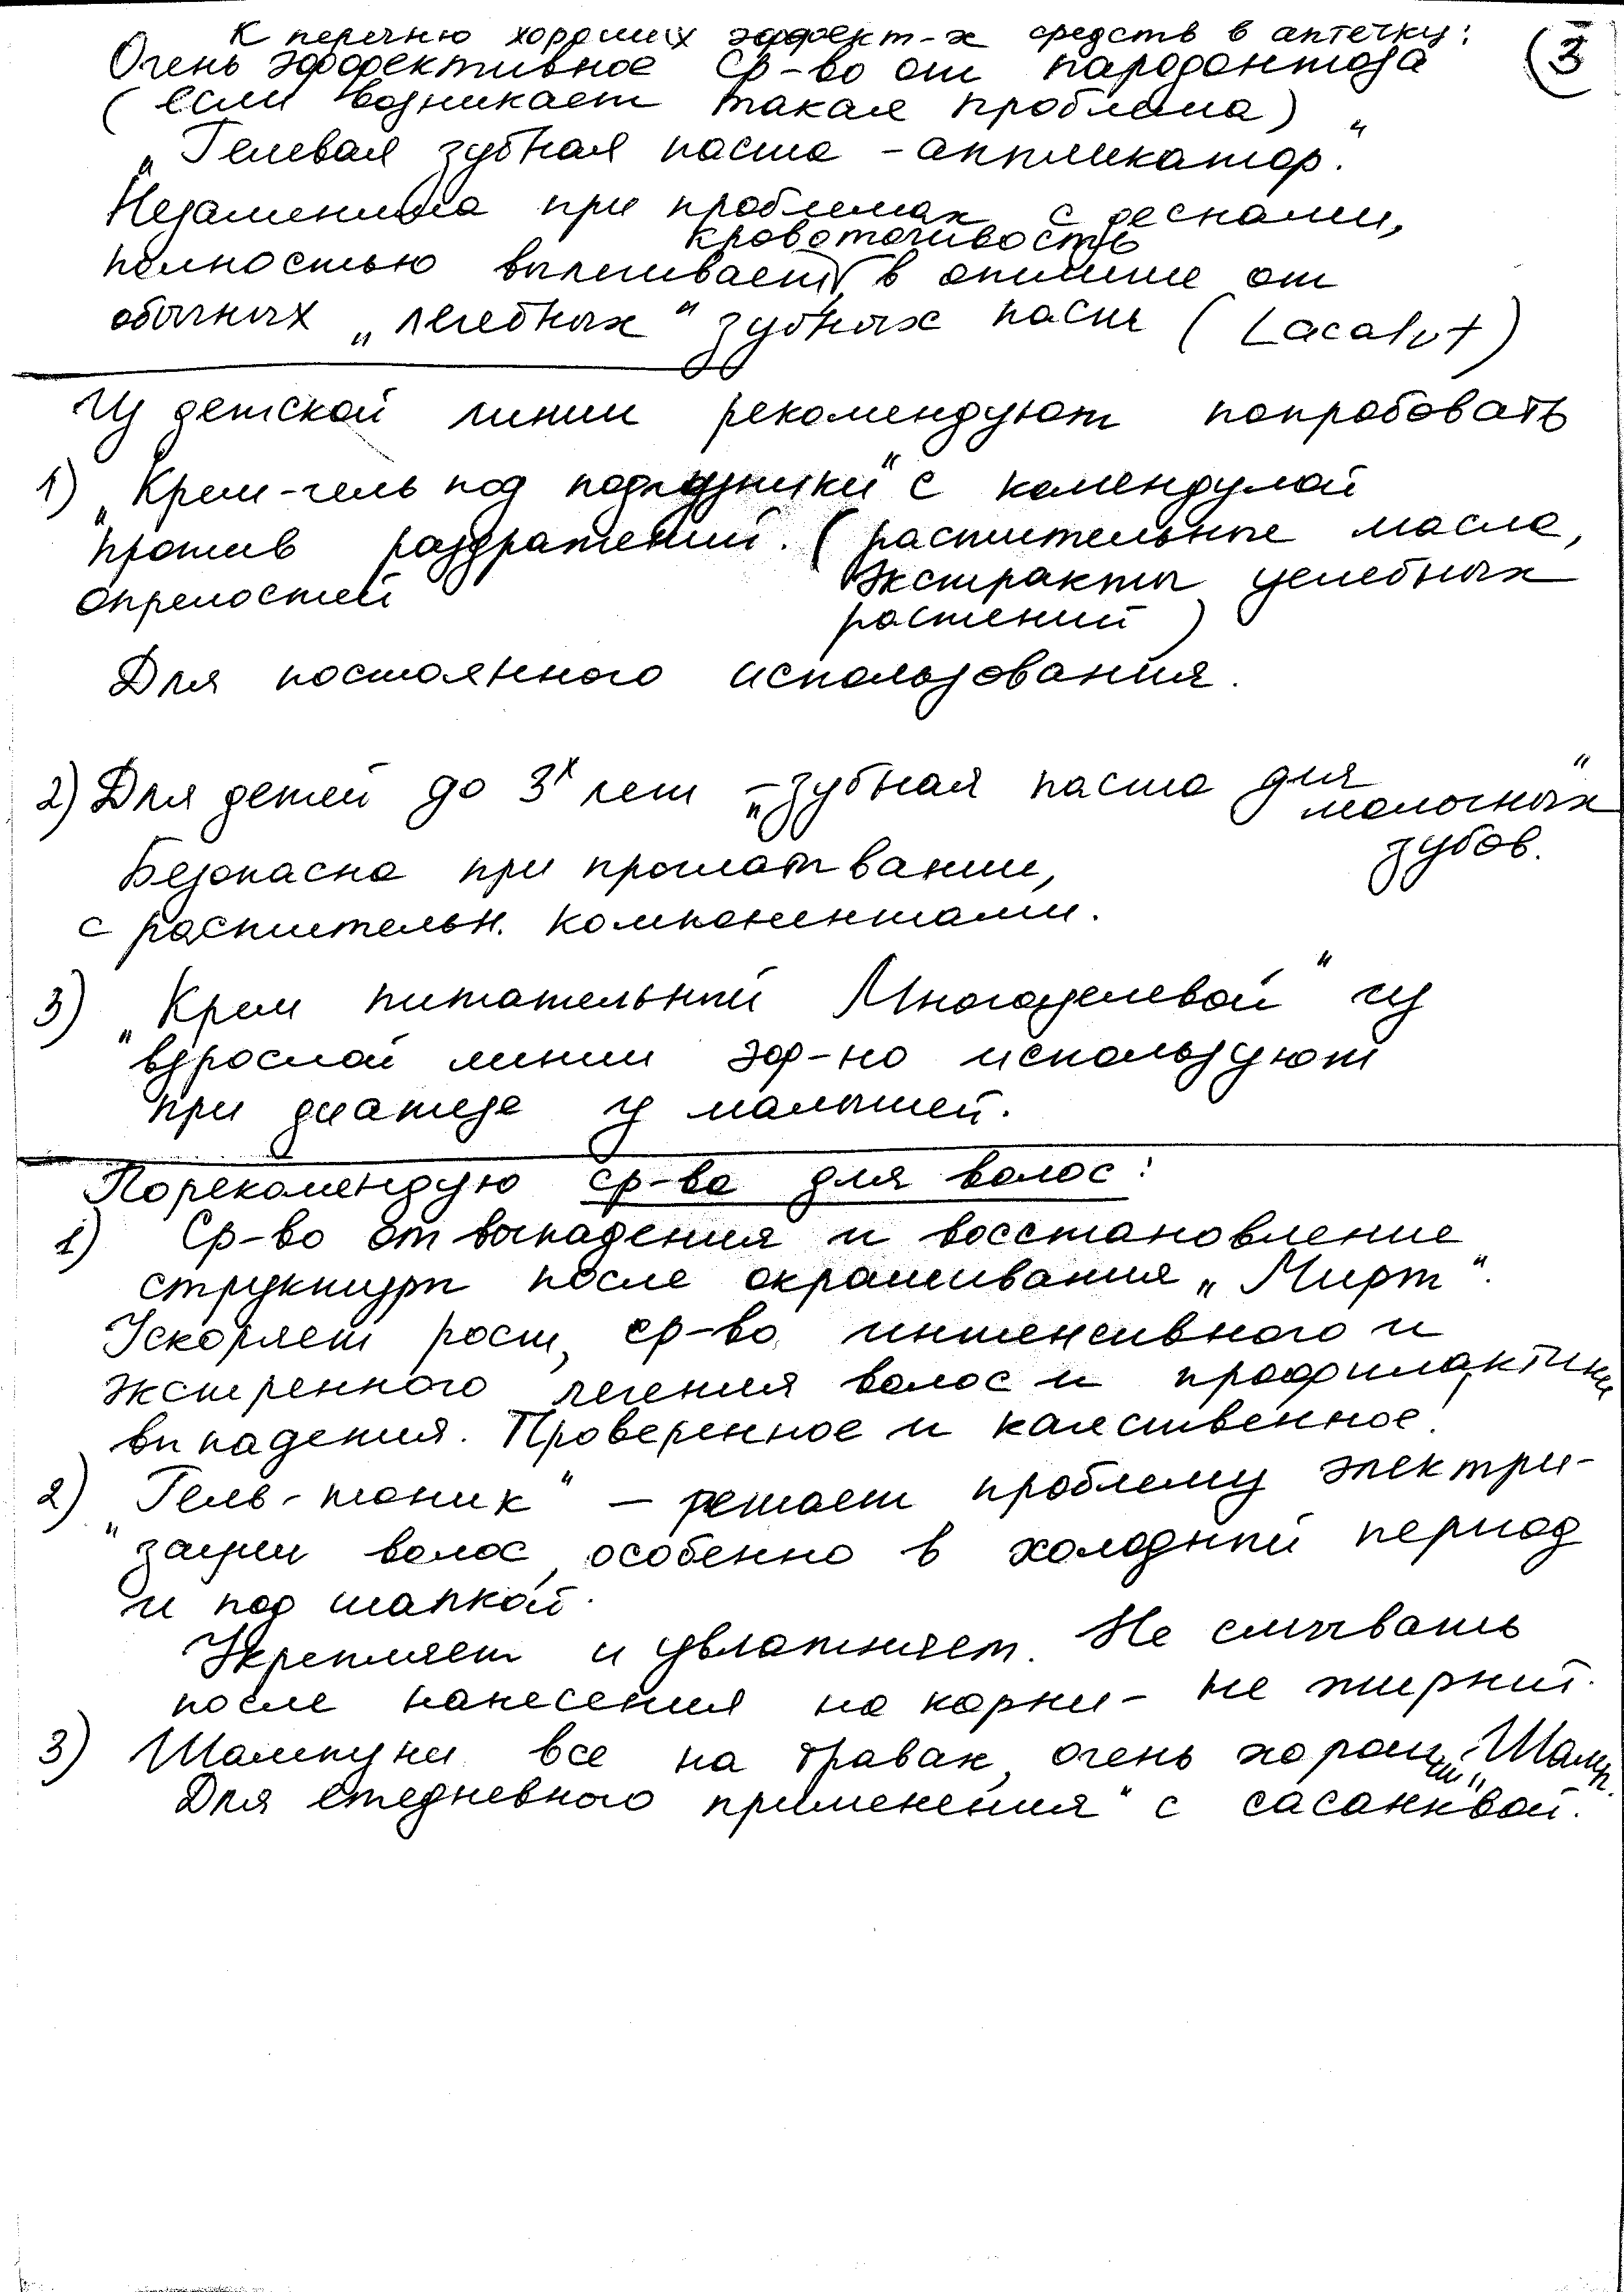 К перечню хороших эффект-х средств в аптечку:
(3
Очень эффективное ср-во от пародонтоза
(если возникает такая проблема)
„Гелевая зубная паста - аппликатор."
Незаменима при проблемах с деснами,
кровоточивость
полностью вылечивает в отличие от
обычных „лечебных" зубных паст (Lacalut)
Из детской линии рекомендуют попробовать
1) „Крем-гель под подгузники" с календулой
против раздражений. (растительные масла,
опрелостей экстракты целебных
растений)
Для постоянного использования.
2) Для детей до 3х лет - „зубная паста для
молочных"
зубов.
Безопасна при проглатывании,
с растительн. компонентами.
3) „Крем питательный Многоцелевой" из
взрослой линии эф-но используют
при диатезе у малышей.
Порекомендую ср-ва для волос:
1) Ср-во от выпадения и восстановление
структуры после окрашивания „Мирт".
Ускоряет рост, ср-во интенсивного и
экстренного лечения волос и профилактики
выпадения. Проверенное и качественное!
2) „Гель-тоник" - решает проблему электри-
зации волос, особенно в холодный период
и под шапкой.
Укрепляет и увлажняет. Не смывать
после нанесения на корни - не жирнит.
3) Шампуни все на травах, очень хорош „Шамп.
Для ежедневного применения" с сасанквой.